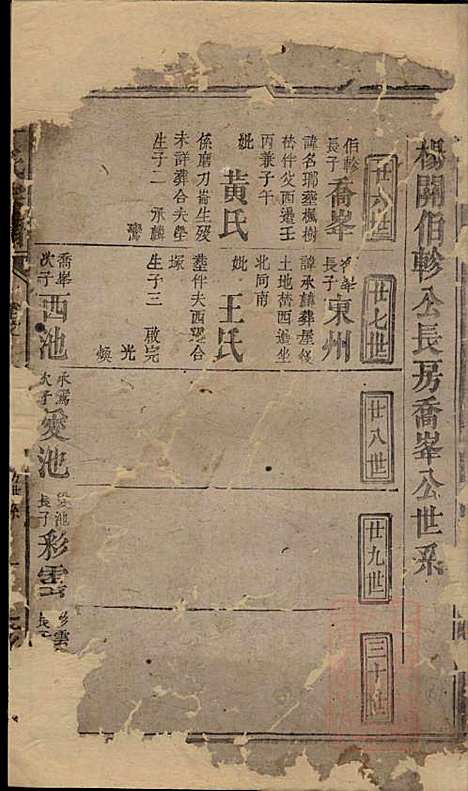 楊關伯軫公長房喬峯公世系
廿六世
伯軫
長子
喬峯
諱名瑯葬楓樹
丙兼子午
妣
黃氏
係磨刀崙生殁
未詳葬合夫塋
生子二
承麟
鸞
廿七世
長子
東州
諱承麟葬屋後
土地
西邊坐
北向南
妣
王氏
葬伴夫西邊合
塚
生子三
啟完
光
煥
廿八世
廿九世
三十世
喬峯
次子
西池
承鸞
次子
愛池
愛池
長子
彩雲
彩雲
長子